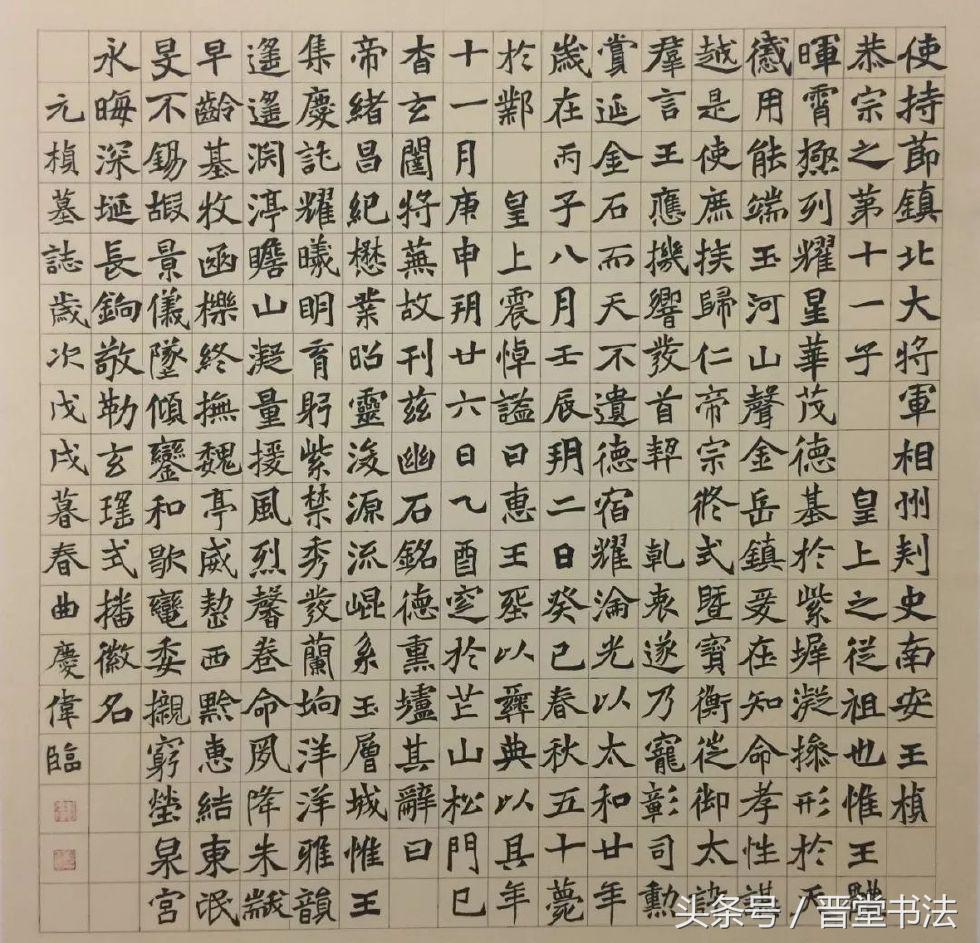 使持節鎮北大將軍相州刾史南安王楨
恭宗之第十一子 皇上之從祖也惟王體
暉霄極列耀星華茂德基於紫墀凝操形於天
感用能端玉河山聲金岳鎮爰在知命孝性諶
越是使庶族歸仁帝宗攸式暨寶衡徙御太訟
羣言王應機響發首契 乾衷遂乃寵彰司勳
賞延金石而天不遺德宿耀淪光以太和廿年
歲在丙子八月壬辰朔二日癸巳春秋五十薨
於鄴 皇上震悼謚曰惠王葬以彝典以其年
十一月庚申朔廿六日乙酉窆於芒山松門巳
杳玄闥將蕪故刊茲幽石銘德熏壚其辭曰
帝緒昌紀懋業昭靈浚源流崐系玉層城惟王
集慶託耀曦明育躬紫禁秀發蘭坰洋洋雅韻
遙遙淵渟瞻山凝量援風烈馨卷命夙降朱黻
早齡基牧函櫟終撫魏亭威愬西黔惠結東氓
旻不錫嘏景儀墜傾鑾和歇轡委櫬窮塋泉宮
永晦深埏長銄敬勒玄瑤式播徽名
元楨墓誌歲次戊戌暮春曲慶偉臨
头条号 / 晋堂书法